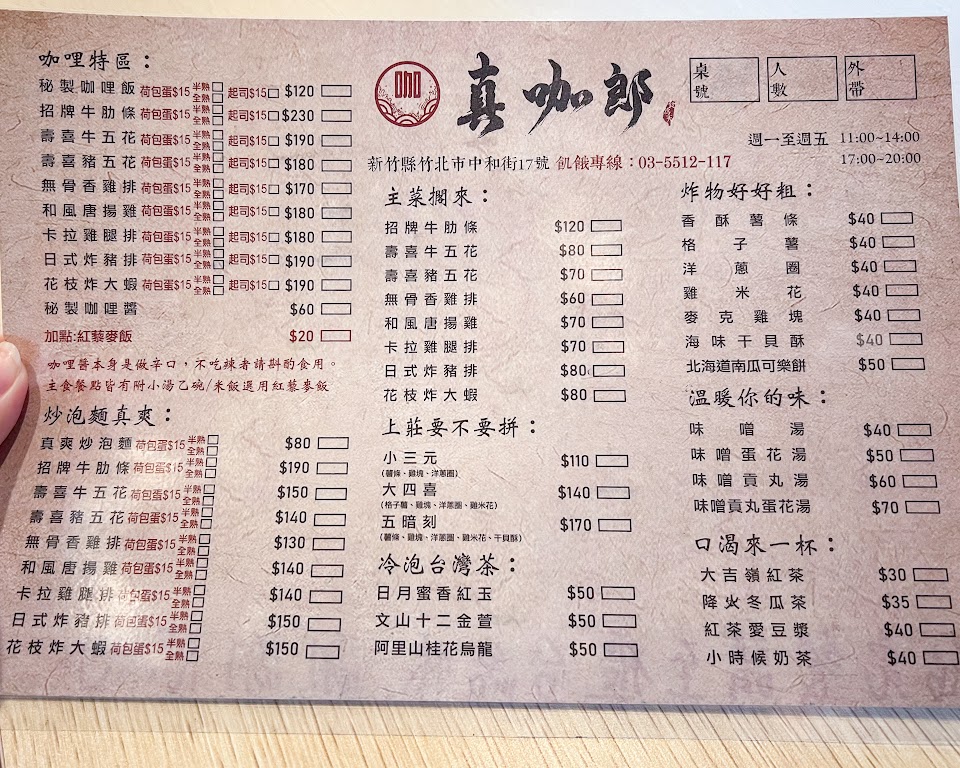 咖哩特區：
秘製咖哩飯 荷包蛋$15 半熟 全熟 起司$15 $120
招牌牛肋條 荷包蛋$15 半熟 全熟 起司$15 $230
壽喜牛五花 荷包蛋$15 半熟 全熟 起司$15 $190
壽喜豬五花 荷包蛋$15 半熟 全熟 起司$15 $180
無骨香雞排 荷包蛋$15 半熟 全熟 起司$15 $170
和風唐揚雞 荷包蛋$15 半熟 全熟 起司$15 $180
卡拉雞腿排 荷包蛋$15 半熟 全熟 起司$15 $180
日式炸豬排 荷包蛋$15 半熟 全熟 起司$15 $190
花枝炸大蝦 荷包蛋$15 半熟 全熟 起司$15 $190
秘製咖哩醬 $60
加點:紅藜麥飯 $20
咖哩醬本身是做辛口，不吃辣者請斟酌食用。
主食餐點皆有附小湯乙碗/米飯選用紅藜麥飯
炒泡麵真爽：
真爽炒泡麵 荷包蛋$15 半熟 全熟 $80
招牌牛肋條 荷包蛋$15 半熟 全熟 $190
壽喜牛五花 荷包蛋$15 半熟 全熟 $150
壽喜豬五花 荷包蛋$15 半熟 全熟 $140
無骨香雞排 荷包蛋$15 半熟 全熟 $130
和風唐揚雞 荷包蛋$15 半熟 全熟 $140
卡拉雞腿排 荷包蛋$15 半熟 全熟 $140
日式炸豬排 荷包蛋$15 半熟 全熟 $150
花枝炸大蝦 荷包蛋$15 半熟 全熟 $150
咖
真咖郎
桌號
人數
外帶
週一至週五 11:00~14:00
17:00~20:00
新竹縣竹北市中和街17號 飢餓專線：03-5512-117
主菜擱來：
招牌牛肋條 $120
壽喜牛五花 $80
壽喜豬五花 $70
無骨香雞排 $60
和風唐揚雞 $70
卡拉雞腿排 $70
日式炸豬排 $80
花枝炸大蝦 $80
上莊要不要拼：
小三元 $110
(薯條、雞塊、洋蔥圈)
大四喜 $140
(格子薯、雞塊、洋蔥圈、雞米花)
五暗刻 $170
(薯條、雞塊、洋蔥圈、雞米花、干貝酥)
冷泡台灣茶：
日月蜜香紅玉 $50
文山十二金萱 $50
阿里山桂花烏龍 $50
炸物好好粗：
香酥薯條 $40
格子薯 $40
洋蔥圈 $40
雞米花 $40
麥克雞塊 $40
海味干貝酥 $40
北海道南瓜可樂餅 $50
溫暖你的味：
味噌湯 $40
味噌蛋花湯 $50
味噌貢丸湯 $60
味噌貢丸蛋花湯 $70
口渴來一杯：
大吉嶺紅茶 $30
降火冬瓜茶 $35
紅茶愛豆漿 $40
小時候奶茶 $40